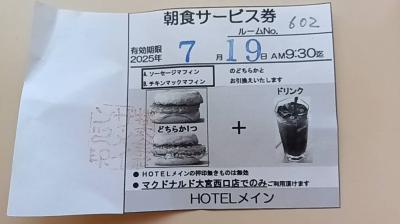 朝食サービス券
ルームNo. 602
有効期限
2025年 7月19日AM9:30迄
A. ソーセージマフィン
B. チキンマックマフィン
のどちらかと
お引換えいたします
ドリンク
どちらか1つ
+
●HOTELメインの押印無きものは無効
●マクドナルド大宮西口店でのみご利用頂けます
HOTELメイン